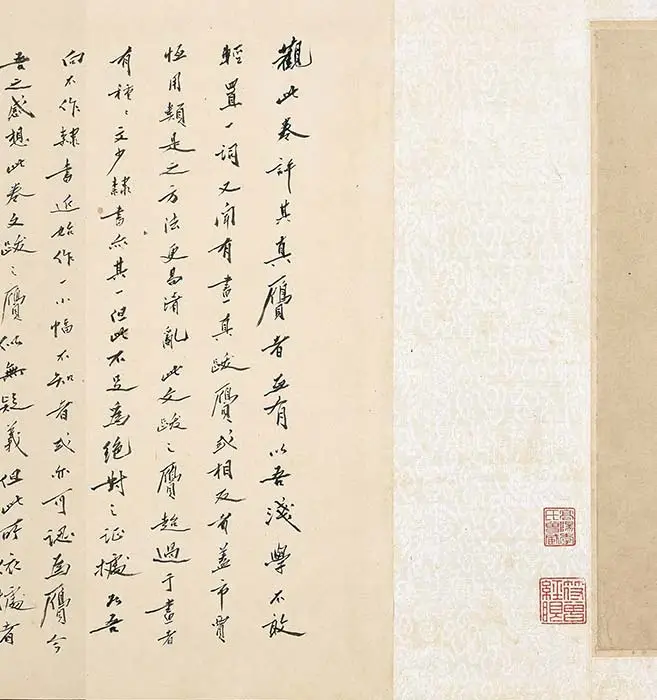 觀此卷評其真贋者互有以吾淺學不敢
輕置一詞又聞有畫真跋贋或相反者蓋市賈
恆用類是之方法更易淆亂此文跋之贋超過于畫者
有種〻文少隸書亦其一但此不足為絕對之証據如吾
向不作隸書近始作一小幅不知者或亦可認為贋今
吾之感想此卷文跋之贋似無疑義但此時依據者